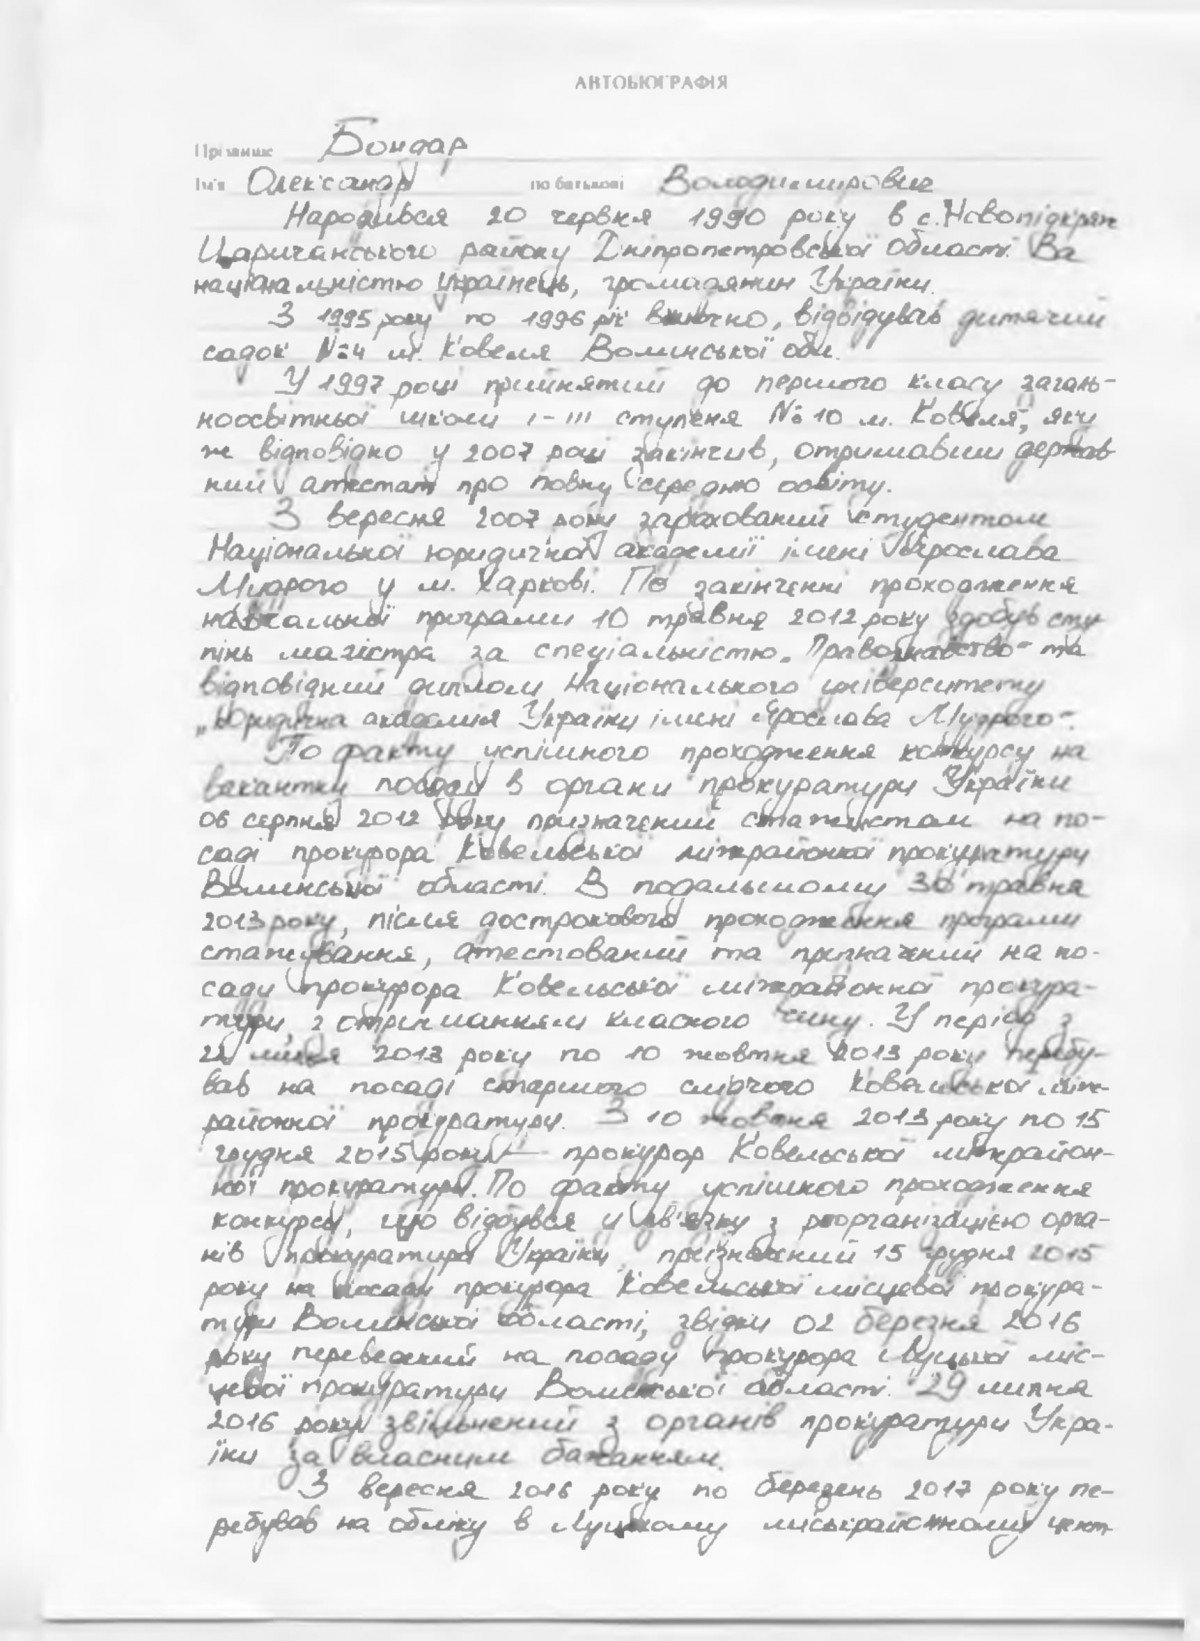 АВТОБІОГРАФІЯ
Прізвище Бондар
Ім'я Олександр по батькові Володимирович
Народився 20 червня 1990 року в с. Новопідкрян
Царичанського району Дніпропетровської області. За
національністю українець, громадянин України.
З 1995 року по 1996 рік включно, відвідував дитячий
садок №4 м. Ковеля Волинської обл.
У 1997 році прийнятий до першого класу загаль-
ноосвітньої школи І-ІІІ ступеня №10 м. Ковеля, яку
ж відповідно у 2007 році закінчив, отримавши держав
ний атестат про повну середню освіту.
З вересня 2007 року зарахований студентом
Національної юридичної академії імені Ярослава
Мудрого у м. Харкові. По закінченні проходження
навчальної програми 10 травня 2012 року здобув сту
пінь магістра за спеціальністю „Правознавство" та
відповідний диплом Національного університету
„Юридична академія України імені Ярослава Мудрого".
По факту успішного проходження конкурсу на
вакантну посаду в органи прокуратури України
06 серпня 2012 року призначений стажистом на по-
саді прокурора Ковельської міжрайонної прокуратури
Волинської області. В подальшому 30 травня
2013 року, після дострокового проходження програми
стажування, атестований та призначений на по-
саду прокурора Ковельської міжрайонної прокура-
тури, з отриманням класного чину. У період з
22 липня 2013 року по 10 жовтня 2013 року перебу-
вав на посаді старшого слідчого Ковельської між-
районної прокуратури. З 10 жовтня 2013 року по 15
грудня 2015 року — прокурор Ковельської міжрайон-
ної прокуратури. По факту успішного проходження
конкурсу, що відбувся у зв'язку з реорганізацією орга-
нів прокуратури України, призначений 15 грудня 2015
року на посаду прокурора Ковельської місцевої прокура-
тури Волинської області, звідки 02 березня 2016
року переведений на посаду прокурора Луцької міс-
цевої прокуратури Волинської області. 29 липня
2016 року звільнений з органів прокуратури Укра-
їни за власним бажанням.
З вересня 2016 року по березень 2017 року пе-
ребував на обліку в Луцькому міськрайонному цент